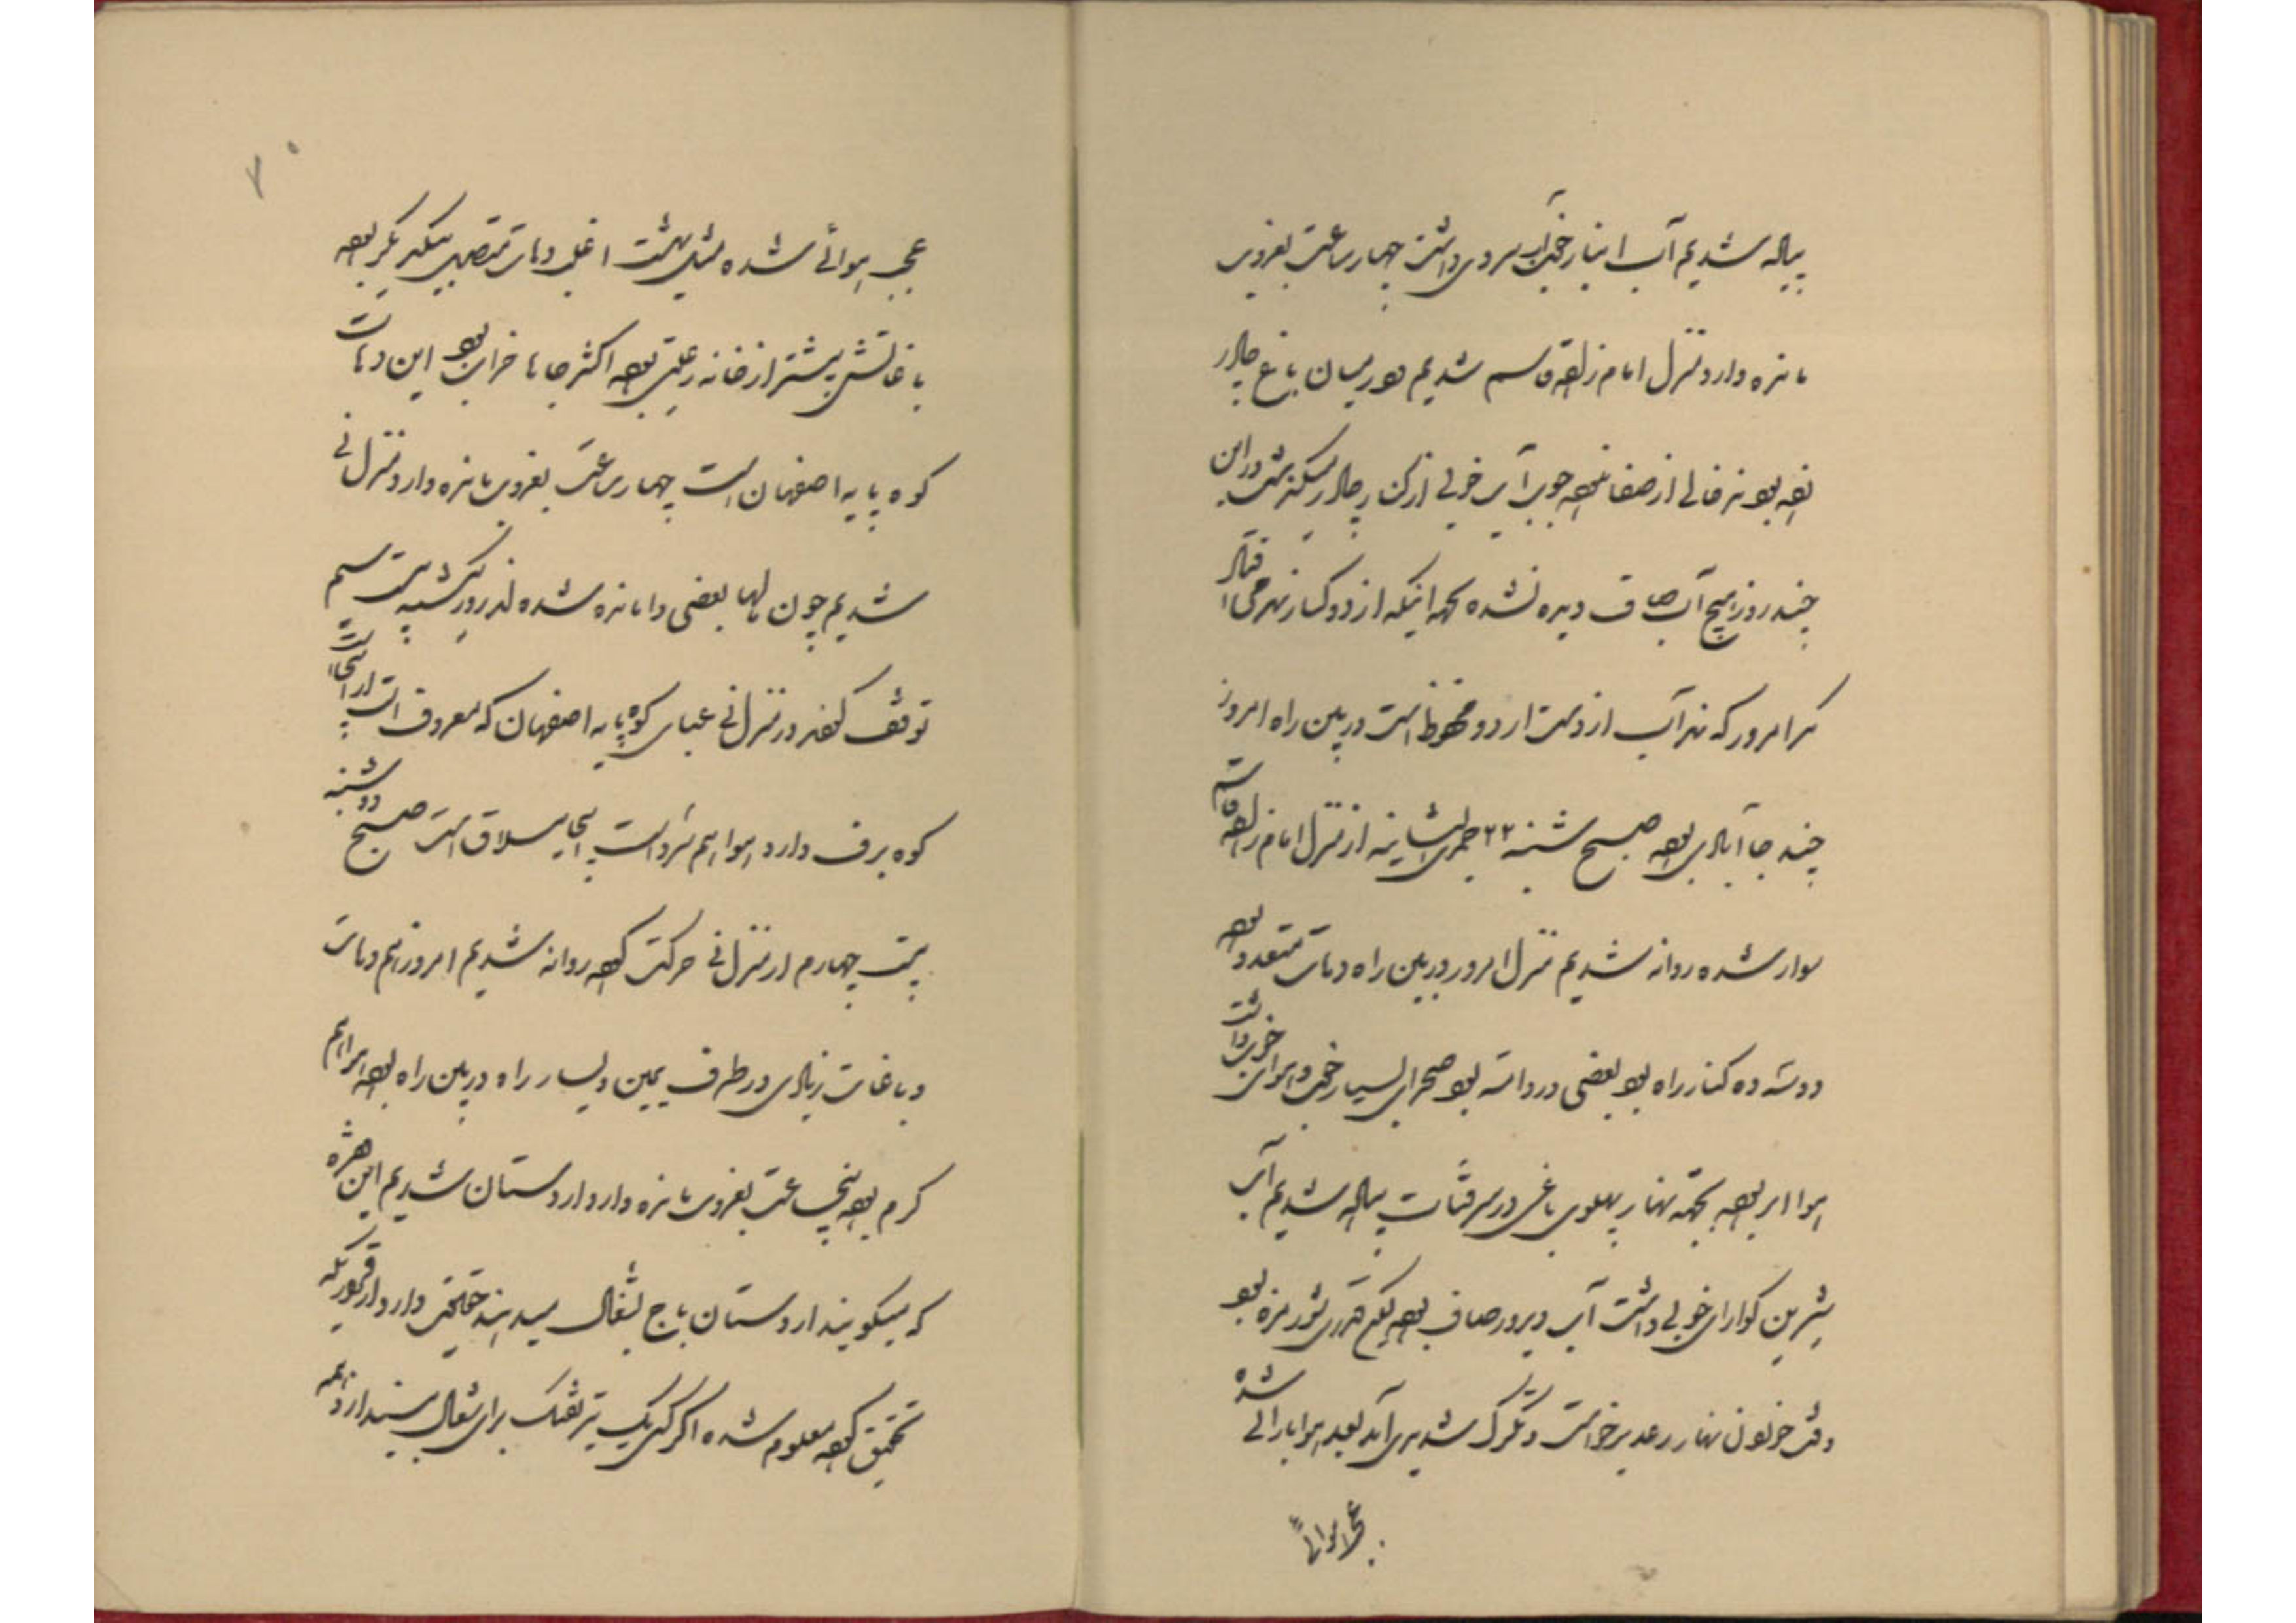 پیاده شدیم آب انبار خنک آب سردی داشت چهار ساعت بغروب
مانده وارد منزل امام زاده قاسم شدیم در میان باغ چادر
زده بود نه خالی از صفا نبود جوی آب خوبی از کنار چادر میگذشت در این
چند روز هیچ آب صاف دیده نشده بجهه اینکه از دو کنار نهر می افتاد
مگر امروز که نهر آب از دست اردو محفوظ است در بین راه امروز
چند جا آبادی بوده صبح شنبه ۲۲ جمدی الثانیه از منزل امام زاده قاسم
سوار شده روانه شدیم منزل امروز در بین راه دهات متعدد بوده
دو سه ده کنار راه بود بعضی در دامنه بود صحرای بسیار خوب و هوای خوب داشت
هوا ابر بوده بجهة نهار پهلوی باغی در سر قنات پیاده شدیم آب
شیرین گوارای خوبی داشت آب دیروز صاف بوده لیکن قدری شور مزه بود
وقت خوردن نهار رعد برخواست و تگرک شدیدی آمد بعد هوا بارانی شده
عجب هوائی
۷۰
عجب هوائی شده مثل بهشت اغلب دهات متصل بیکدیگر بوده
باغاتش بیشتر از خانه رعیتی بوده اکثر جاها خراب بود این دهات
کوه پایه اصفهان است چهار ساعت بغروب مانده وارد منزل نی
شدیم چون مالها بعضی وامانده شده لذا روز یکشنبه بیست سیم
توقف کرده در منزل نی عبای کوه پایه اصفهان که معروف است از اینجا است
کوه برف دارد هوا هم سرد است اینجا ییلاق است صبح دوشنبه
بیست چهارم از منزل نی حرکت کرده روانه شدیم امروز هم دهات
و باغات زیادی در طرف یمین و یسار راه در بین راه بوده هوا هم
گرم بوده پنج ساعت بغروب مانده وارد اردستان شدیم این
که میگویند اردستان باج بشغال میدهند حقیقت دارد از قراریکه
تحقیق کرده معلوم شده اگر کسی یک تیر تفنک برای شغال بیندازد همه